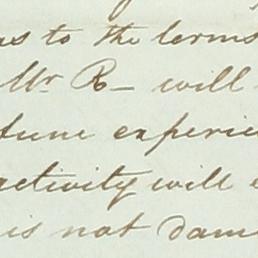 as to the terms
Mr R— will
tune experie
activity will e
is not dam